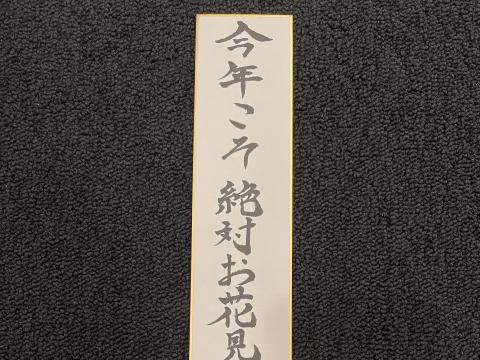 今年こそ絶対お花見